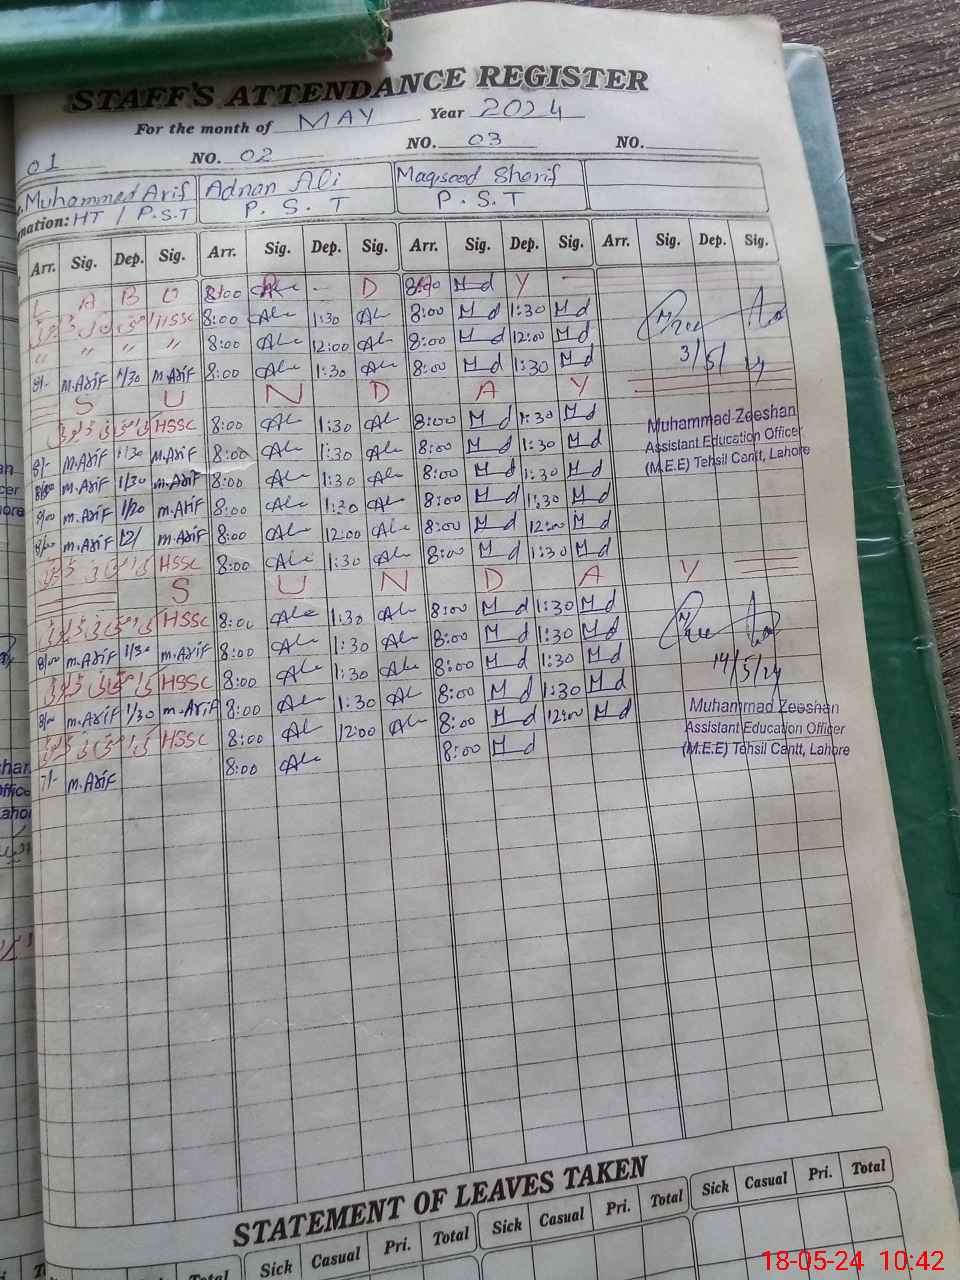 STAFF'S ATTENDANCE REGISTER
For the month of MAY Year 2024
01 NO. 02 NO. 03 NO.
Muhammad Arif Adnan Ali Maqsood Sharif
nation: HT / P.S.T P.S.T P.S.T
Arr. Sig. Dep. Sig. Arr. Sig. Dep. Sig. Arr. Sig. Dep. Sig. Arr. Sig. Dep. Sig.
L A B O 8:00 D 8:00 Md Y
HSSC 8:00 1:30 8:00 Md 1:30 Md
" " " " 8:00 12:00 8:00 Md 12:00 Md
8/- M.Arif 1/30 M.Arif 8:00 1:30 8:00 Md 1:30 Md
3/5/24
S U N D A Y
HSSC 8:00 1:30 8:00 Md 1:30 Md
8/- M.Arif 1/30 M.Arif 8:00 1:30 8:00 Md 1:30 Md
8/00 M.Arif 1/30 M.Arif 8:00 1:30 8:00 Md 1:30 Md
8/00 M.Arif 1/30 M.Arif 8:00 1:30 8:00 Md 1:30 Md
8/00 M.Arif 12/ M.Arif 8:00 12:00 8:00 Md 12:00 Md
HSSC 8:00 1:30 8:00 Md 1:30 Md
Muhammad Zeeshan
Assistant Education Officer
(M.E.E) Tehsil Cantt, Lahore
S U N D A Y
HSSC 8:00 1:30 8:00 Md 1:30 Md
8/00 M.Arif 1/30 M.Arif 8:00 1:30 8:00 Md 1:30 Md
HSSC 8:00 1:30 8:00 Md 1:30 Md
8/00 M.Arif 1/30 M.Arif 8:00 1:30 8:00 Md 1:30 Md
HSSC 8:00 12:00 8:00 Md 12:00 Md
7/- M.Arif 8:00 8:00 Md
14/5/24
Muhammad Zeeshan
Assistant Education Officer
(M.E.E) Tehsil Cantt, Lahore
STATEMENT OF LEAVES TAKEN
Total Sick Casual Pri. Total Sick Casual Pri. Total Sick Casual Pri. Total
18-05-24 10:42